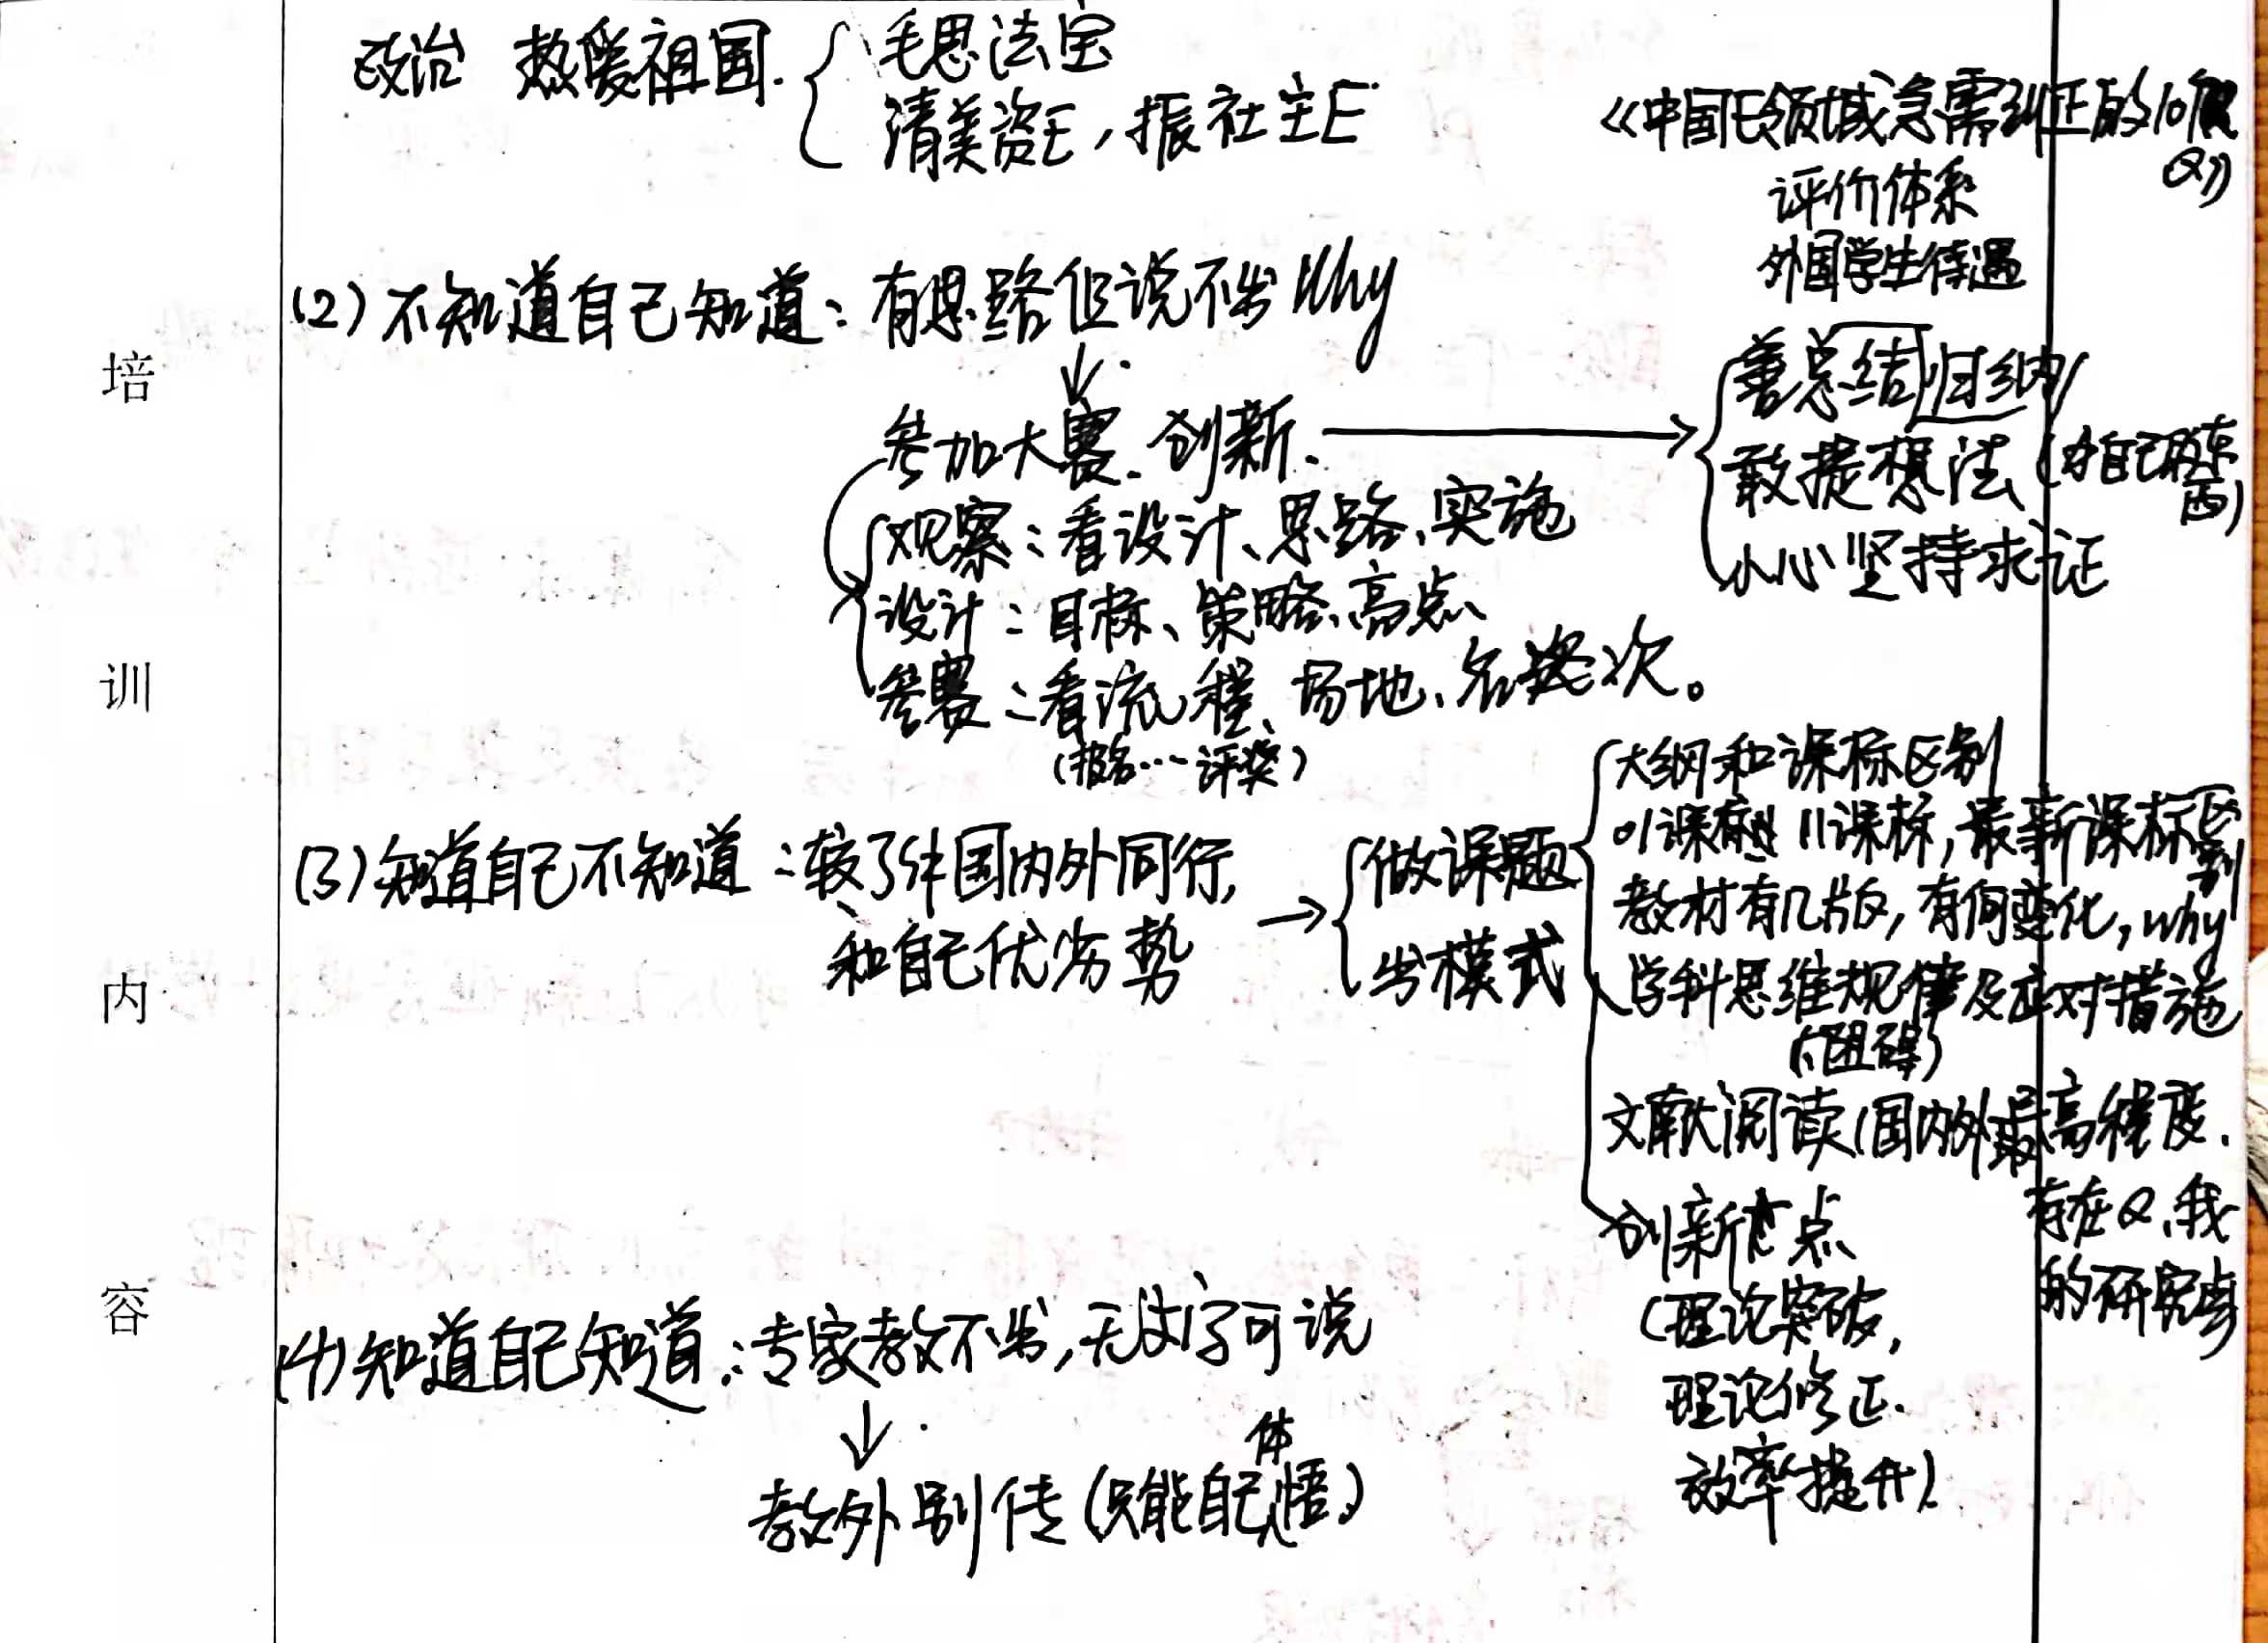 培训内容
政治 热爱祖国.
毛思法宝
清美资E，振社主E
《中国E领域急需纠正的10个
Q》
评价体系
外国学生待遇
(2) 不知道自己知道：有思路但说不出Why
↓
参加大赛、创新、→
善总结归纳
敢提想法(为自己的东西)
小心坚持求证
观察：看设计、思路、实施
设计：目标、策略、亮点
参赛：看流程、场地、名奖次。
(报名…评奖)
(3) 知道自己不知道：较了解国内外同行,
和自己优劣势
→
做课题
出模式
大纲和课标区别
01课标 11课标,最新课标区别
教材有几版,有何变化,why
学科思维规律及应对措施
(阻碍)
文献阅读(国内外最高程度.
存在Q、我
的研究点
创新点
(理论突破,
理论修正.
效率提升)
(4) 知道自己知道：专家教不出,无文字可说
↓
教外别传(只能自己体悟)